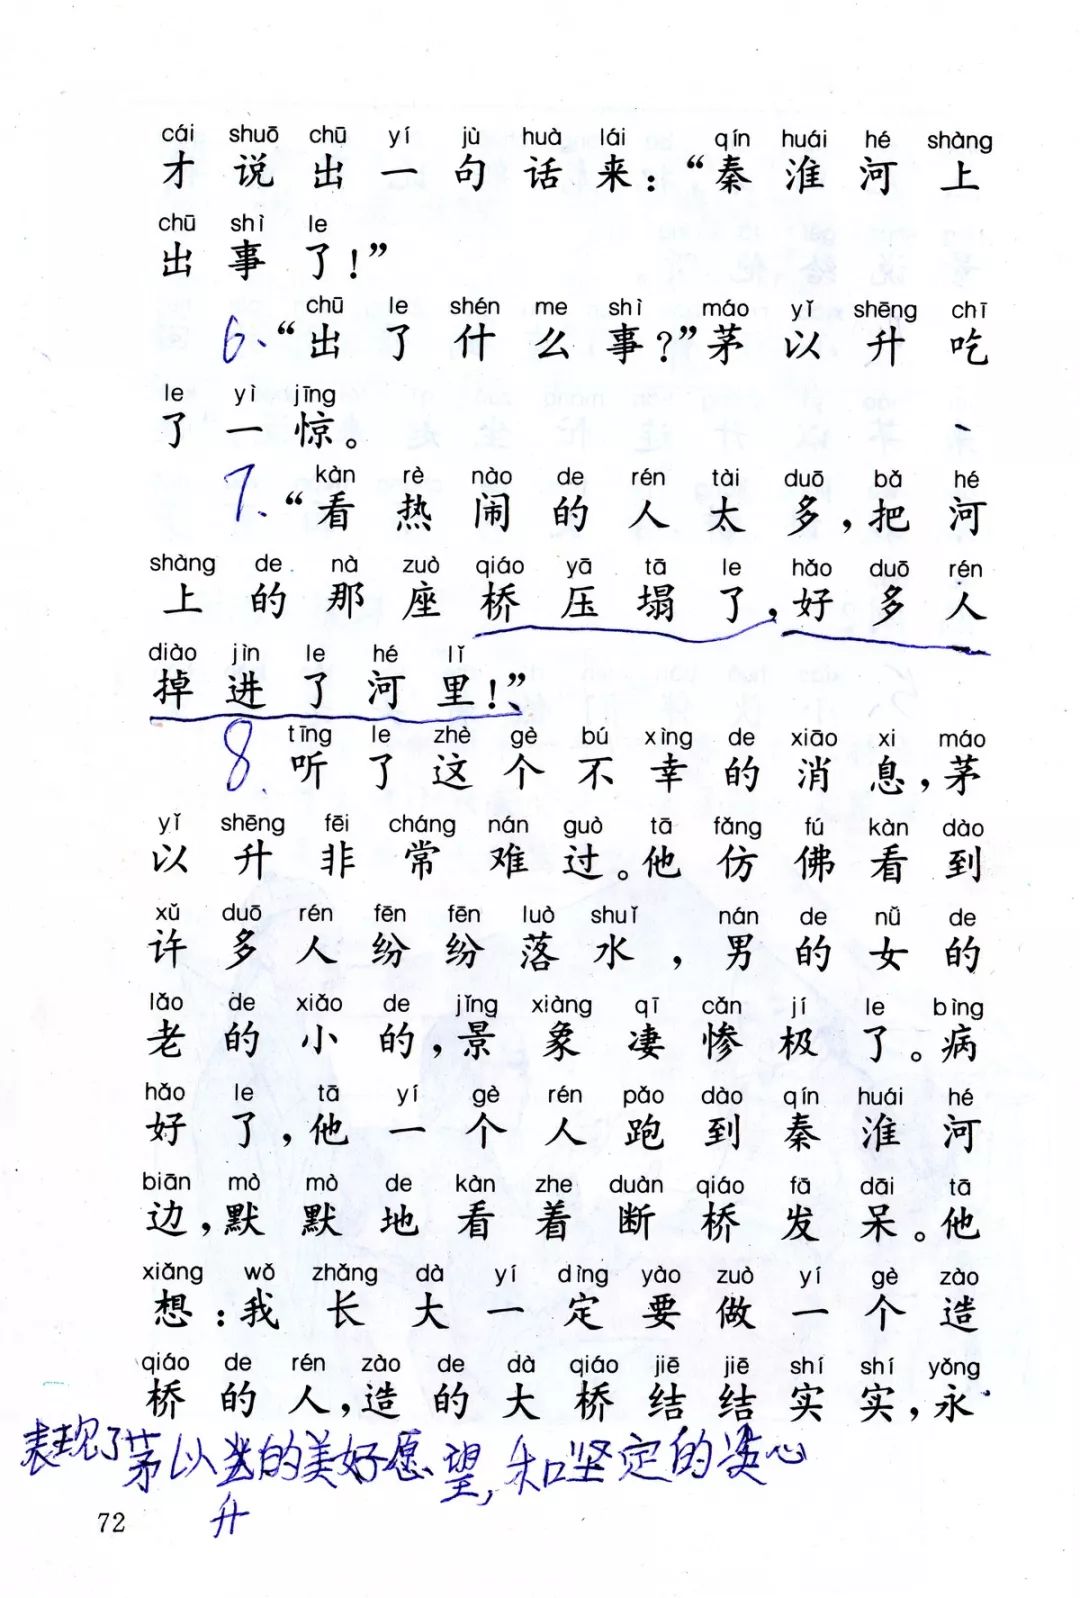 cái shuō chū yí jù huà lái qín huái hé shàng
才说出一句话来：“秦淮河上
chū shì le
出事了！”
chū le shén me shì máo yǐ shēng chī
6、“出了什么事？”茅以升吃
le yì jīng
了一惊。
kàn rè nào de rén tài duō bǎ hé
7、“看热闹的人太多，把河
shàng de nà zuò qiáo yā tā le hǎo duō rén
上的那座桥压塌了，好多人
diào jìn le hé lǐ
掉进了河里！”
tīng le zhè gè bú xìng de xiāo xi máo
8、听了这个不幸的消息，茅
yǐ shēng fēi cháng nán guò tā fǎng fú kàn dào
以升非常难过。他仿佛看到
xǔ duō rén fēn fēn luò shuǐ nán de nǚ de
许多人纷纷落水，男的女的
lǎo de xiǎo de jǐng xiàng qī cǎn jí le bìng
老的小的，景象凄惨极了。病
hǎo le tā yí gè rén pǎo dào qín huái hé
好了，他一个人跑到秦淮河
biān mò mò de kàn zhe duàn qiáo fā dāi tā
边，默默地看着断桥发呆。他
xiǎng wǒ zhǎng dà yí dìng yào zuò yí gè zào
想：我长大一定要做一个造
qiáo de rén zào de dà qiáo jiē jiē shí shí yǒng
桥的人，造的大桥结结实实，永
表现了茅以升的美好愿望，和坚定的决心
72